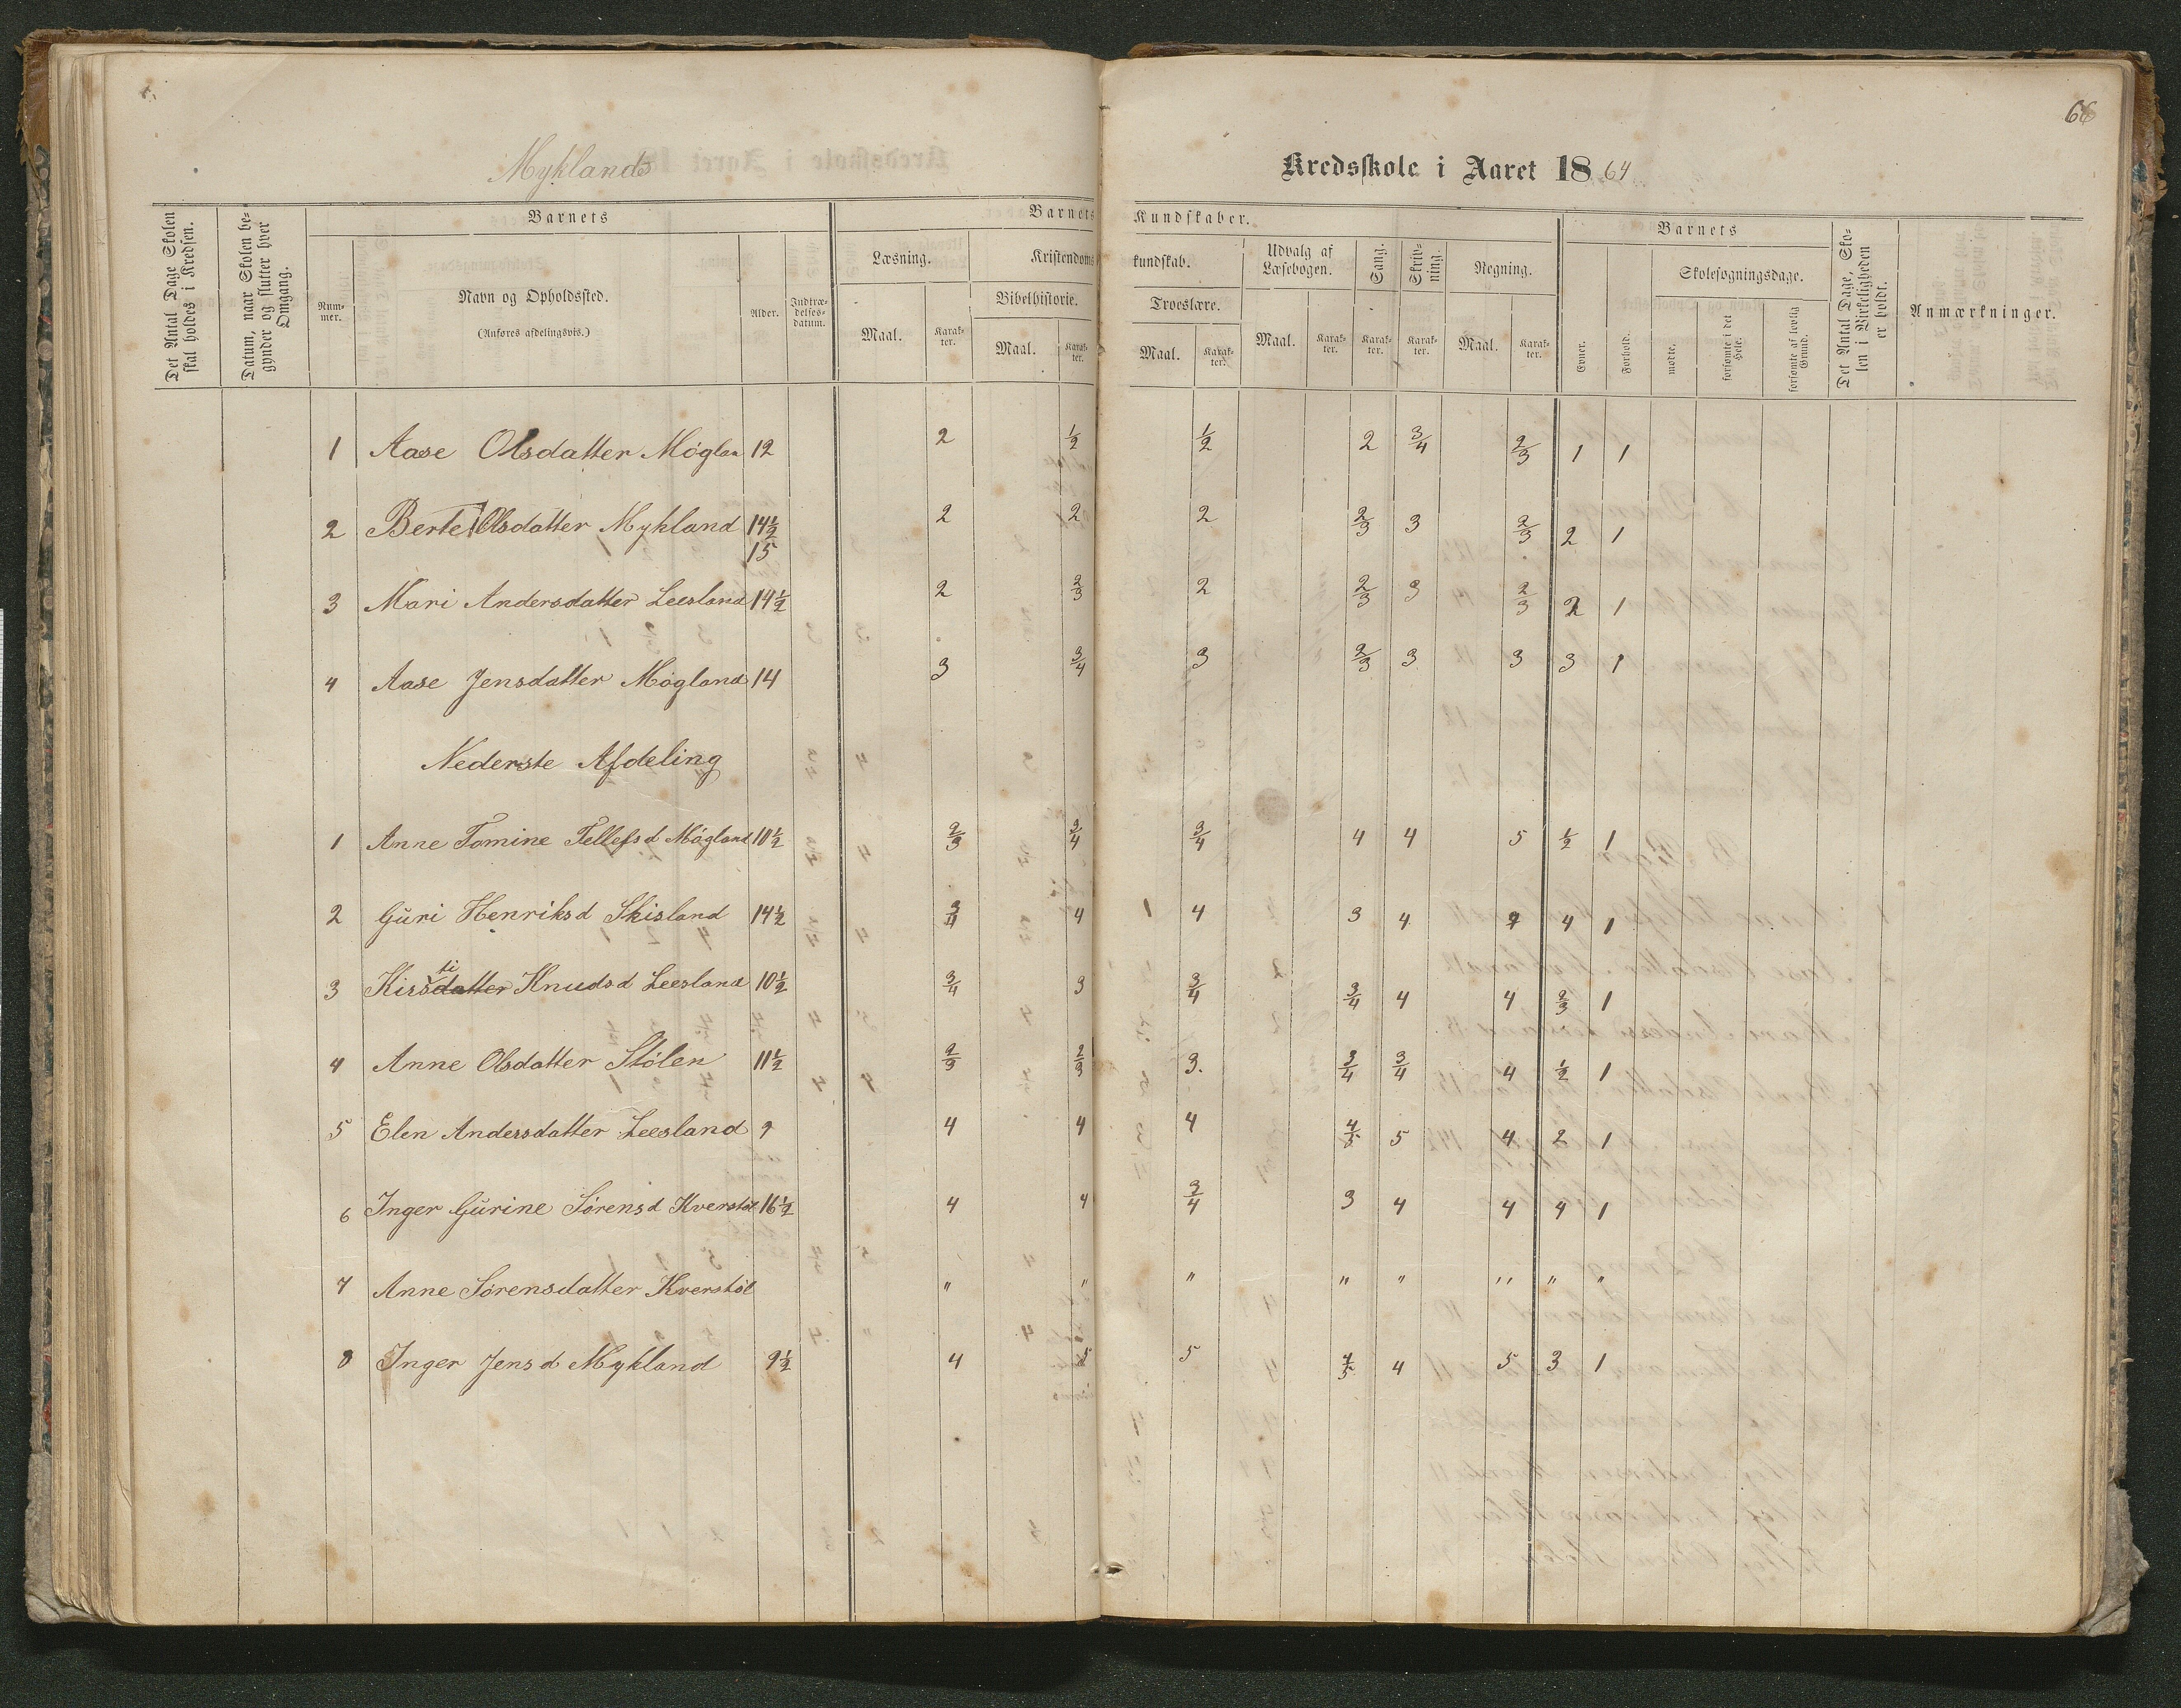 66
Myklands Kredsskole i Aaret 1864
Det Antal Dage Skolen skal holdes i Kredsen.
Datum, naar Skolen begynder og slutter hver Omgang.
Barnets
Nummer.
Navn og Opholdssted.
(Anføres afdelingsvis.)
Alder.
Indtrædelsesdatum.
Barnets Kundskaber.
Læsning.
Maal.
Karakter.
Kristendomskundskab.
Bibelhistorie.
Maal.
Karakter.
Troeslære.
Maal.
Karakter.
Udvalg af Læsebogen.
Maal.
Karakter.
Sang.
Karakter.
Skrivning.
Karakter.
Regning.
Maal.
Karakter.
Barnets
Evner.
Forhold.
Skolesøgningsdage.
mødte.
forsømte i det Hele.
forsømte af lovlig Grund.
Det Antal Dage, Skolen i Virkeligheden er holdt.
Anmærkninger.
1 Aase Olsdatter Møglan 12 2 1/2 1/2 2 3/4 2/3 1 1
2 Berte Olsdatter Mykland 14 1/2 2 2 2 2/3 3 2/3 2 1
15
3 Mari Andersdatter Leesland 14 1/2 2 2/3 2 2/3 3 2/3 2 1
4 Aase Jensdatter Møgland 14 3 3/4 3 2/3 3 3 3 1
Nederste Afdeling
1 Anne Tomine Tellefsd Møgland 10 1/2 2/3 3/4 3/4 4 4 5 1/2 1
2 Guri Henriksd Skisland 14 1/2 3/4 4 1 4 3 4 4 1
3 Kirsti Knudsd Leesland 10 1/2 3/4 3 3/4 3/4 4 4 2/3 1
4 Anne Olsdatter Stølen 11 1/2 2/3 2/3 3. 3/4 3/4 4 1/2 1
5 Elen Andersdatter Leesland 9 4 4 4 4/5 5 4 2 1
6 Inger Gurine Sørensd Kverstøl 16 1/2 4 4 3/4 3 4 4 4 1
7 Anne Sørensdatter Kverstøl " " " " " " " "
8 Inger Jensd Mykland 9 1/2 4 5 5 4/5 4 5 3 1